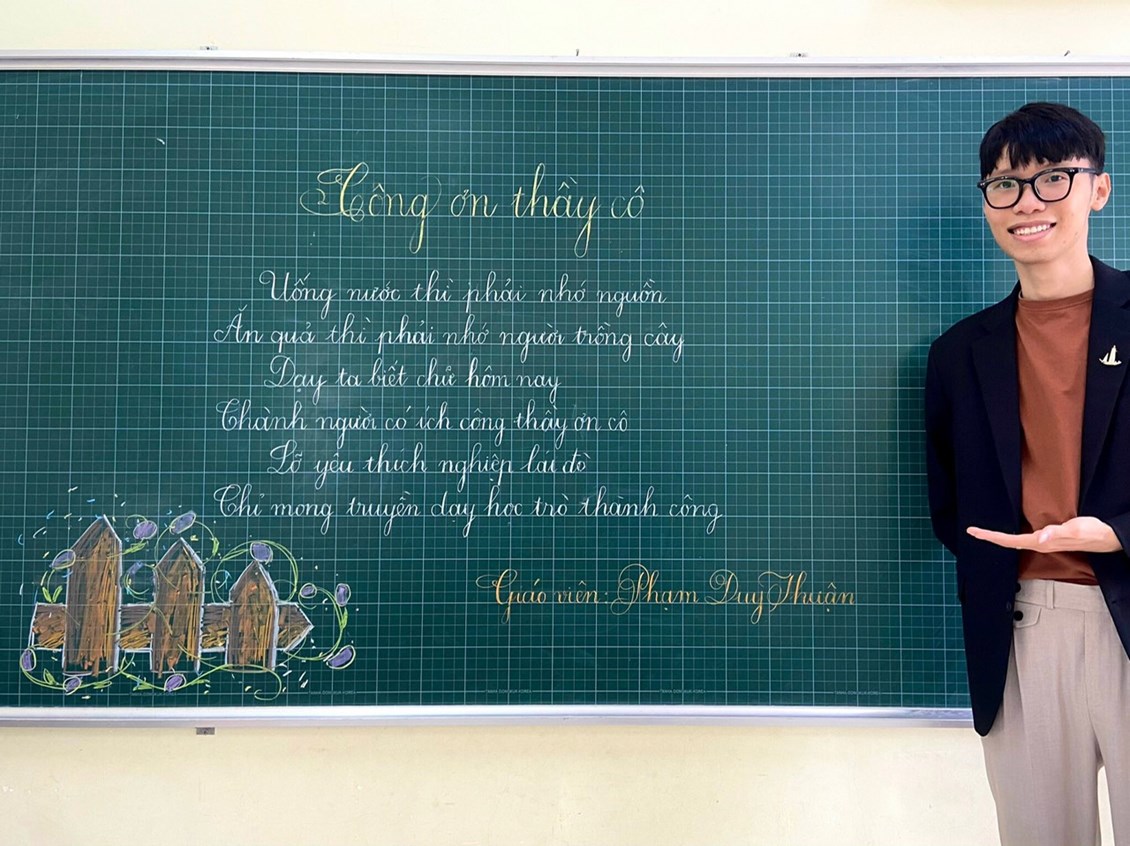 Công ơn thầy cô
Uống nước thì phải nhớ nguồn
Ăn quả thì phải nhớ người trồng cây
Dạy ta biết chữ hôm nay
Thành người có ích công thầy ơn cô
Lỡ yêu thích nghiệp lái đò
Chỉ mong truyền dạy học trò thành công
Giáo viên: Phạm Duy Thuận